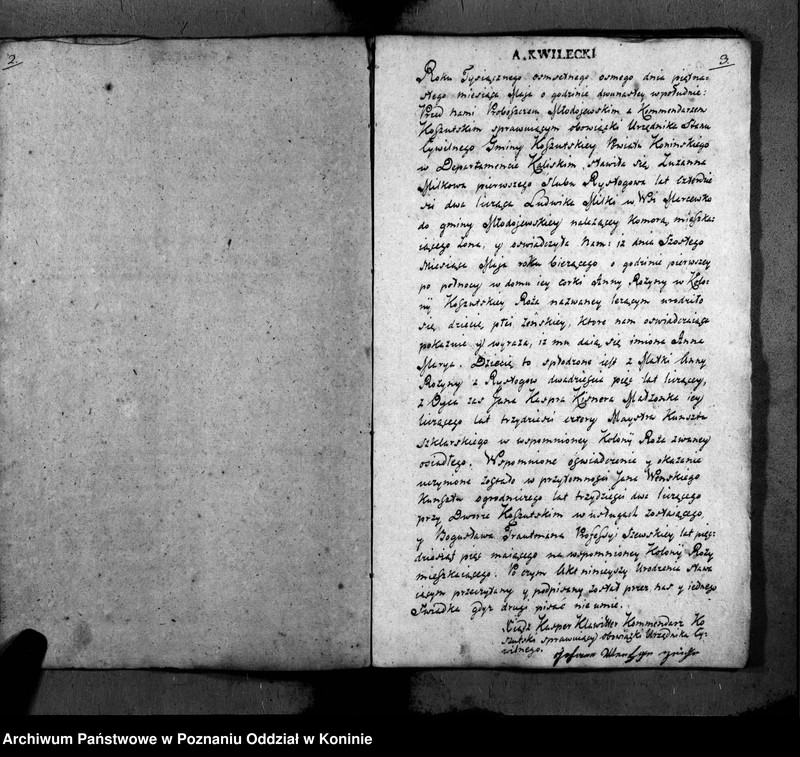 2.
A. KWILECKI
3.
Roku Tysiącznego osmsetnego osmego dnia piętna-
stego miesiąca Maja o godzinie dwunastey wpołudnie:
Przed Nami Proboszczem Młodojewskim a Kommendarzem
Koszutskim sprawuiącym obowiązki Urzędnika Stanu
Cywilnego Gminy Koszutskiey Powiatu Konińskiego
w Departamencie Kaliskim stawiła się Zuzanna
Milkowa pierwszego Slubu Rystogowa lat czterdzie
sci dwa licząca Ludwika Milki w Wsi Marcewko
do gminy Młodojewskiey należącey Komorą mieszka-
iącego żona, y oswiadczyła Nam: iż dnia Szostego
Miesiąca Maja roku bieżącego o godzinie pierwszey
po połnocy w domu iey corki Anny Rożyny w Kolo-
nij Koszutskiey Roża nazwaney leżącym urodziło
się dziecię płci żeńskiey, ktore nam oswiadczaiąca
pokazuie y wyraża, iż mu daią się imiona Anna
Marya. Dziecię to spłodzone iest z Matki Anny
Rożyny z Rystogow dwadzieścia pięć lat liczącey,
z Oyca zas Jana Kaspra Kisnera Małżonka iey
liczącego lat trzydziesci cztery Maystra Kunsztu
szklarskiego w wspomnioney Kolonij Roża zwaney
osiadłego. Wspomnione oswiadczenie y okazanie
uczynione zostało w przytomnosci Jana Wonskiego
Kunsztu ogrodniczego lat trzydziesci dwa liczącego
przy Dworze Koszutskim w usługach zostaiącego,
y Bogusława Trautmana Professyi Szewskiey lat pięć-
dziesiąt pięć maiącego na wspomnioney Kolonij Roży
mieszkaiącego. Po czym Akt ninieyszy Urodzenia stawa
iącym przeczytany y podpisany został przez nas y iednego
Swiadka gdyż drugi pisać nie umie.
Xiądz Kasper Klawitter Kommendarz Ko
szutski sprawuiący obowiązki Urzędnika Cy-
wilnego.
Archiwum Państwowe w Poznaniu Oddział w Koninie